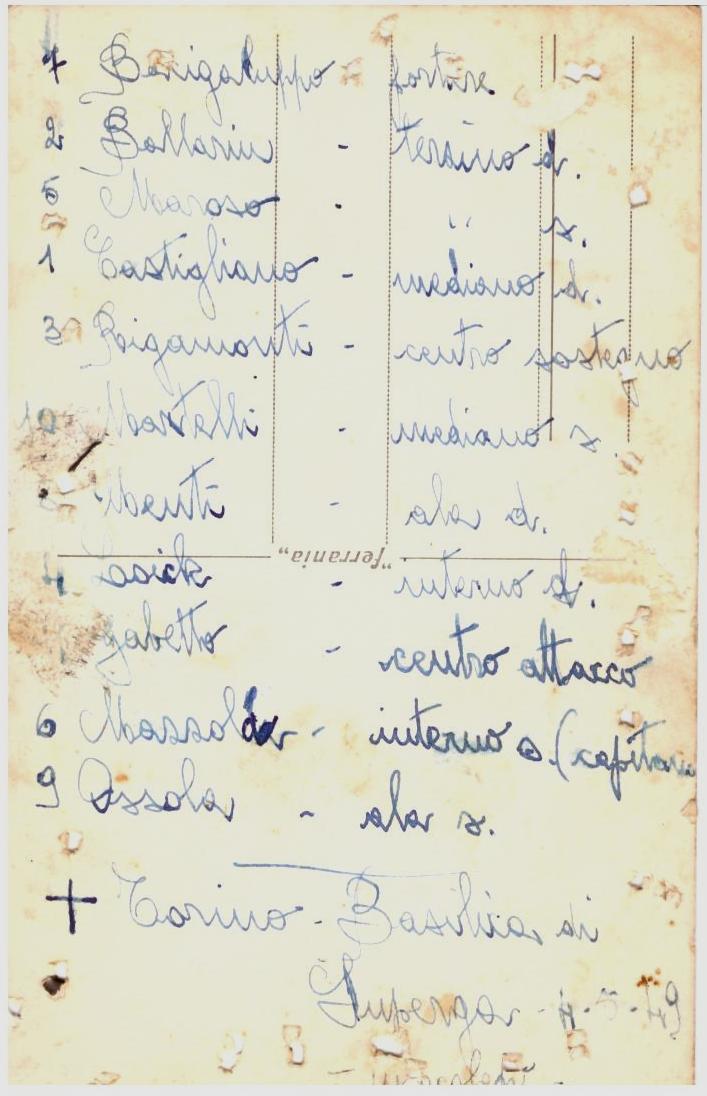 7 Bonigaluppo - portire
2 Ballarin - terzino d.
5 Maroso - " s.
1 Castigliano - mediano d.
3 Rigamonti - centro sostegno
10 Martelli - mediano s.
Menti - ala d.
4 Loick - interno d.
gabetto - centro attacco
6 Mazzola - interno s. (capitano
9 Ossola - ala s.
"ferrania"
+ Torino - Basilica di
Superga - 4-5-49